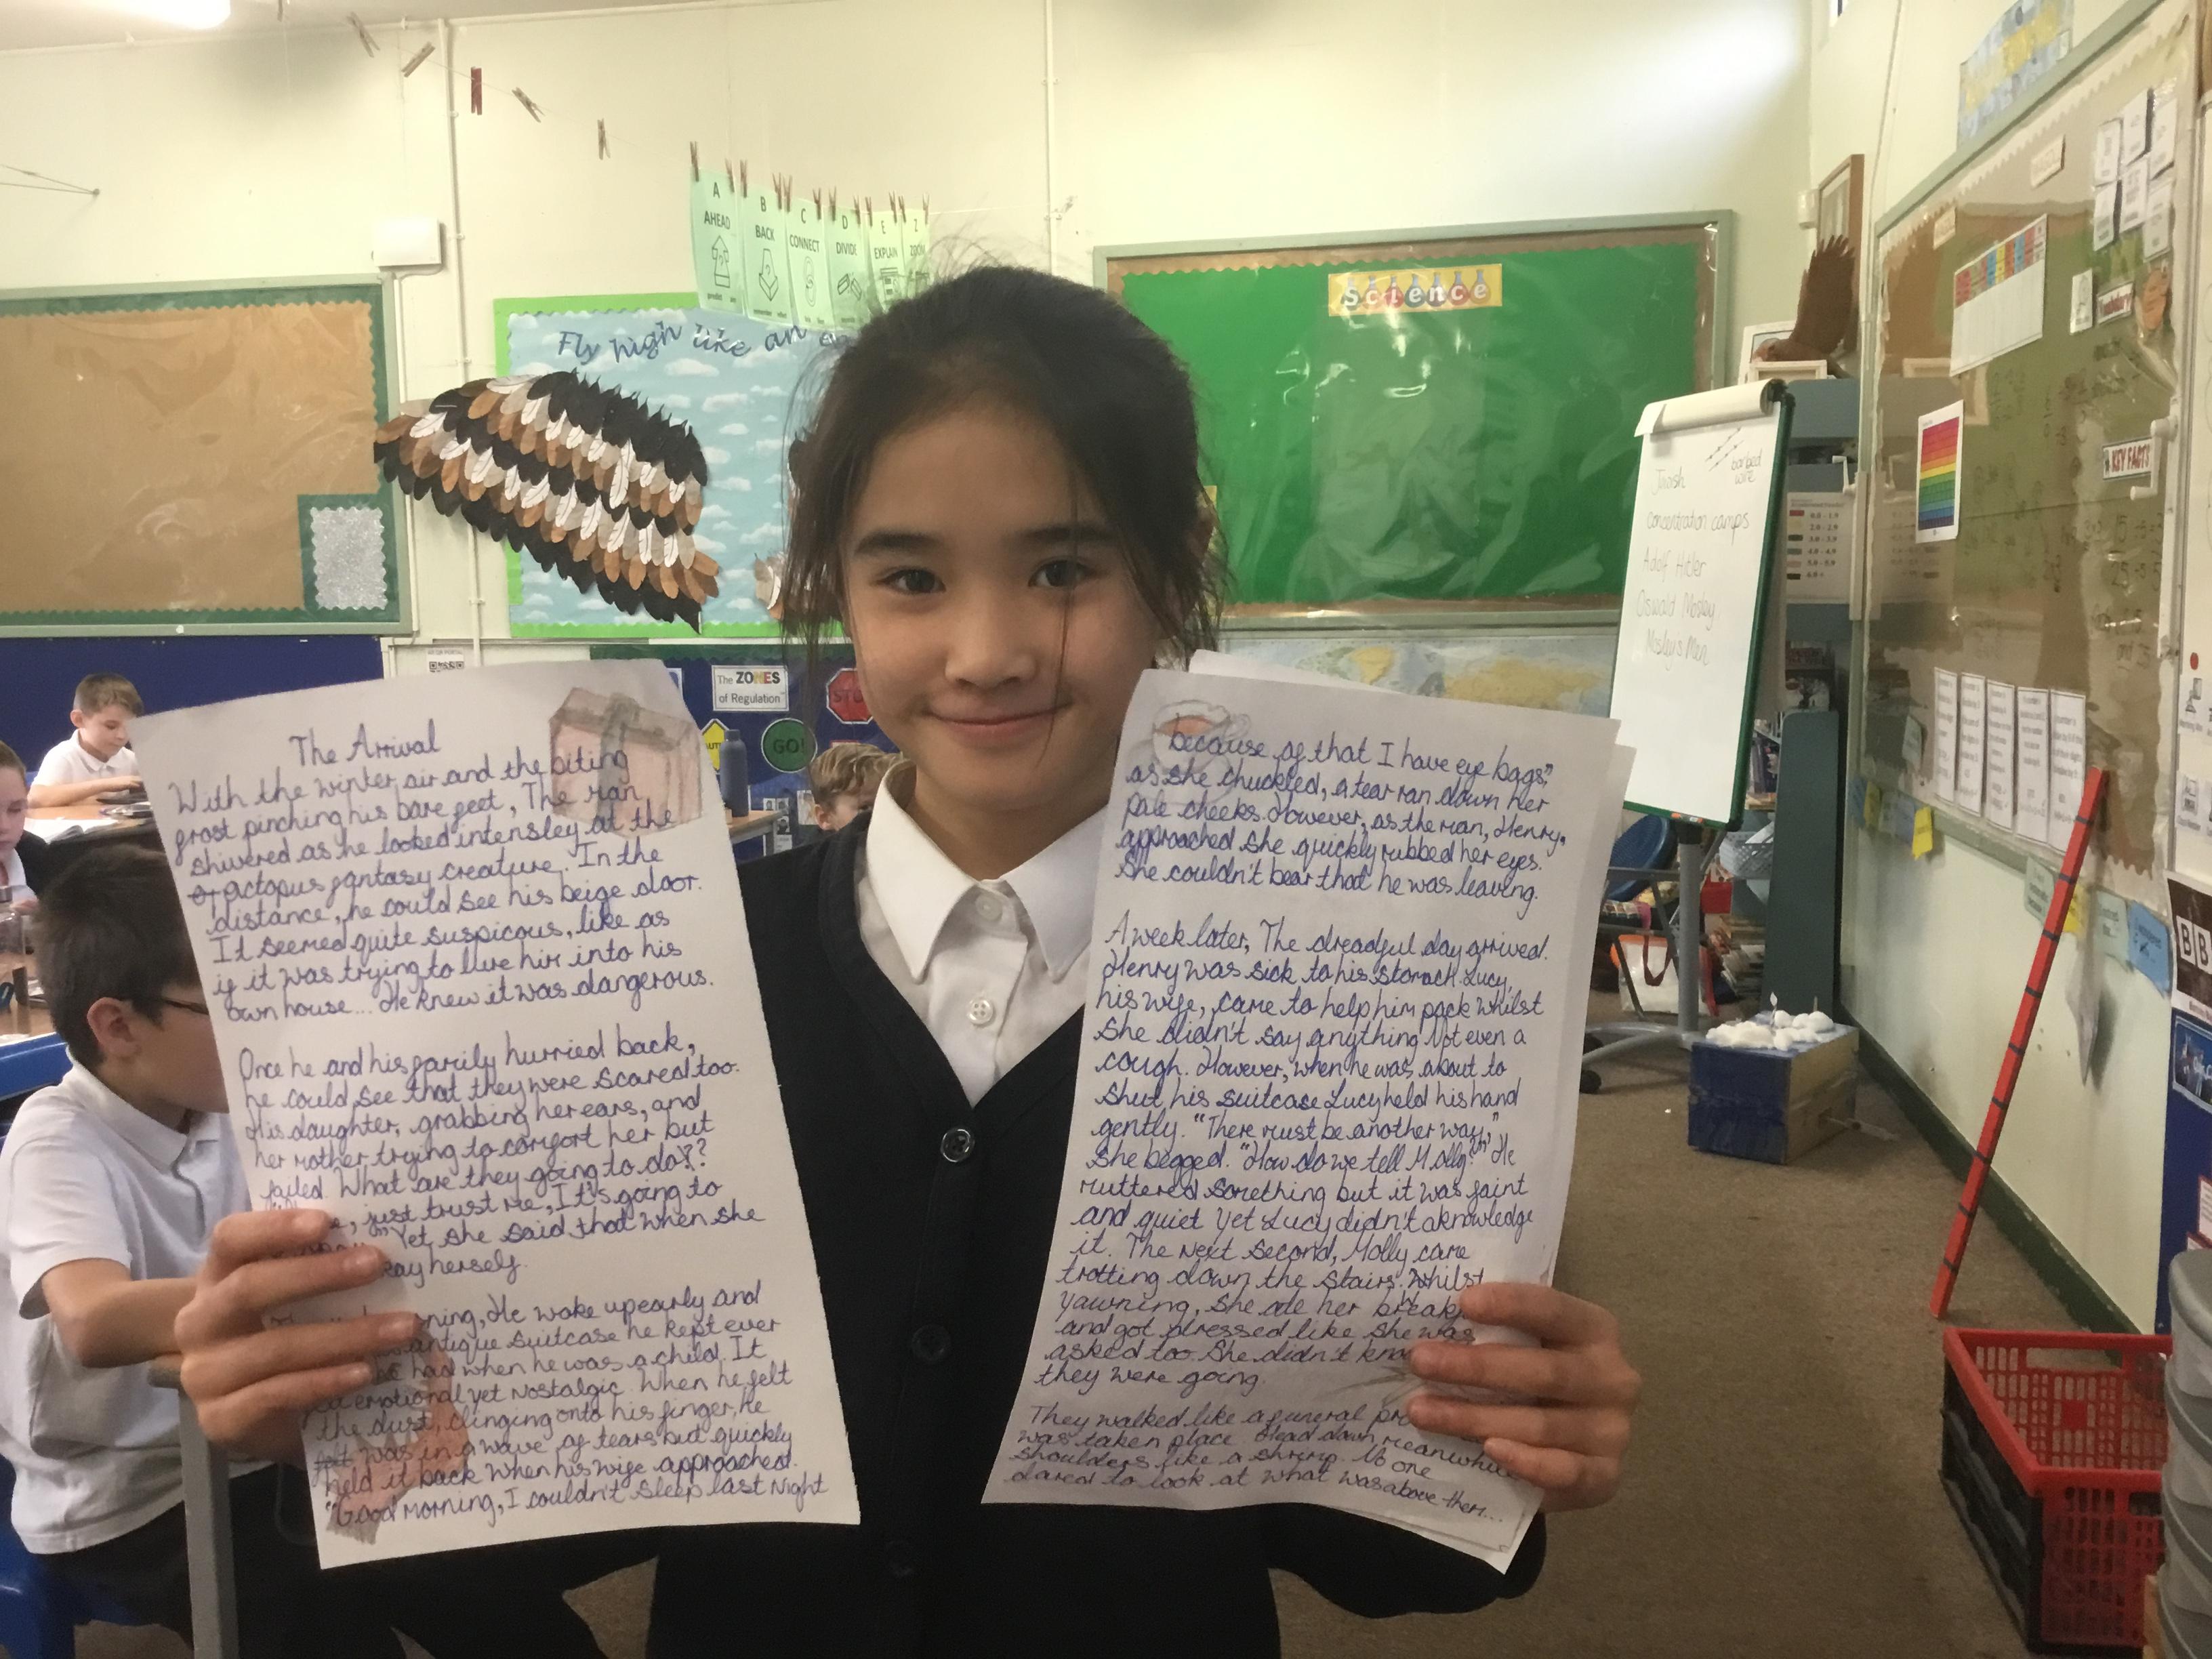 A
AHEAD
B
BACK
C
CONNECT
D
DIVIDE
E
EXPLAIN
Z
ZOOM
Fly high like an
Science
The ZONES
of Regulation
STO
GO!
barbed
wire
Jewish
concentration camps
Adolf Hitler
Oswald Mosley
Mosley's Men
KEY FACTS
BB
The Arrival
With the winter air and the biting
frost pinching his bare feet, The man
shivered as he looked intensley at the
octopus fantasy creature. In the
distance, he could see his beige door.
It seemed quite suspicous, like as
if it was trying to lure him into his
own house... He knew it was dangerous.
Once he and his family hurried back,
he could see that they were scared too.
His daughter, grabbing her ears, and
her mother trying to comfort her but
failed. What are they going to do??
just trust me, It's going to
Yet, she said that when she
herself.
He woke up early and
antique suitcase he kept ever
he had when he was a child. It
emotional yet nostalgic. When he felt
the dust, clinging onto his finger, he
felt was in a wave of tears but quickly
held it back when his wife approached.
"Good morning, I couldn't sleep last night
because of that I have eye bags"
as she chuckled, a tear ran down her
pale cheeks. However, as the man, Henry,
approached she quickly rubbed her eyes.
She couldn't bear that he was leaving.
A week later, The dreadful day arrived.
Henry was sick to his stomach. Lucy,
his wife, came to help him pack whilst
she didn't say anything Not even a
cough. However, when he was about to
shut his suitcase Lucy held his hand
gently. "There must be another way,"
she begged. "How do we tell Molly?" He
muttered something but it was faint
and quiet yet Lucy didn't aknowledge
it. The next second, Molly came
trotting down the stairs. Whilst
yawning, she ate her
and got dressed like she was
asked too. She didn't
they were going.
They walked like a funeral
was taken place. Head down meanwhile
shoulders like a shrimp. No one
dared to look at what was above them...